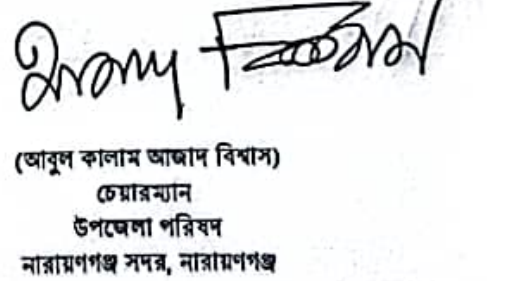 আজাদ বিশ্বাস
(আবুল কালাম আজাদ বিশ্বাস)
চেয়ারম্যান
উপজেলা পরিষদ
নারায়ণগঞ্জ সদর, নারায়ণগঞ্জ